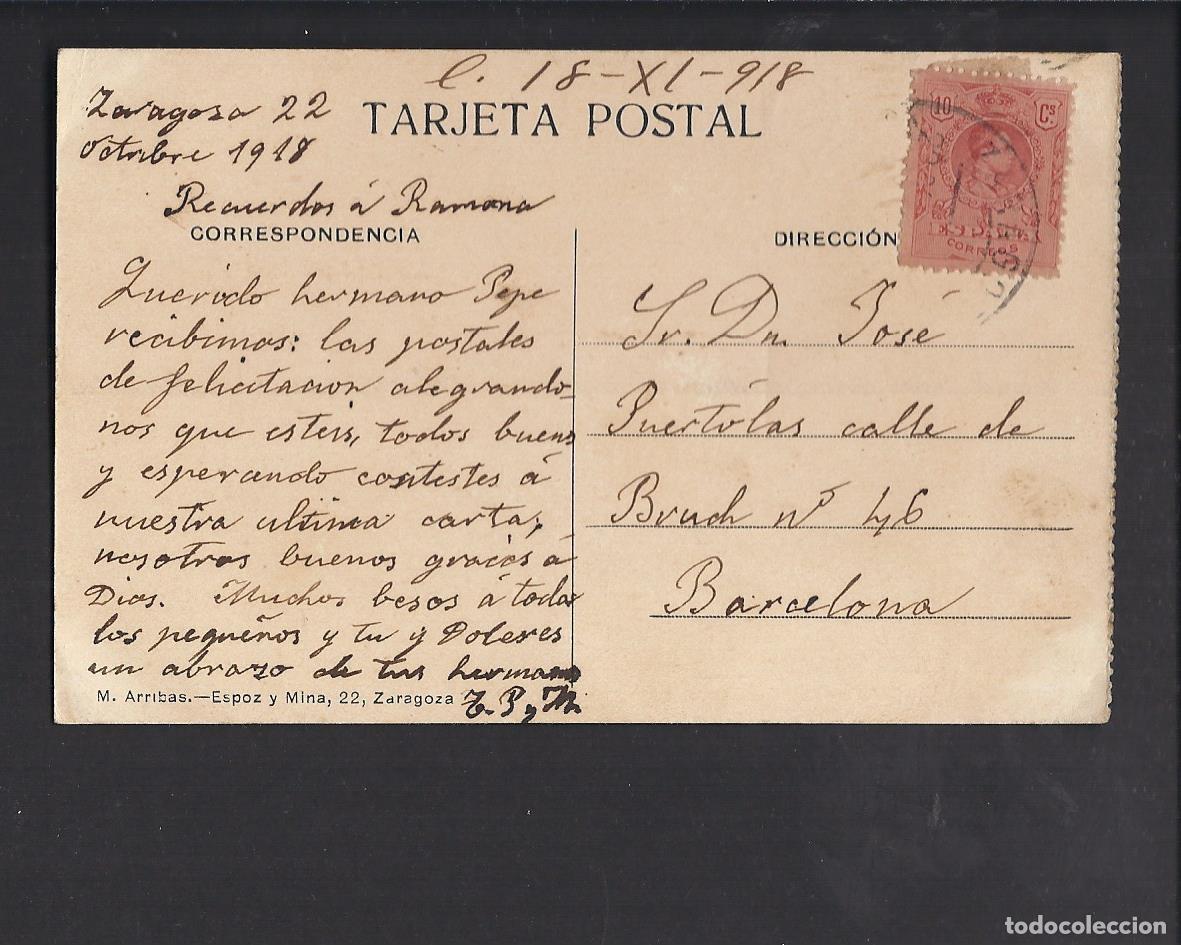 C. 18-XI-918
Zaragoza 22
Octubre 1918
TARJETA POSTAL
Recuerdos á Ramona
CORRESPONDENCIA
Querido hermano Pepe
recibimos: las postales
de felicitacion alegrando-
nos que esteis, todos buenos
y esperando contestes á
nuestra ultima carta,
nosotros buenos gracias á
Dios. Muchos besos á todos
los pequeños y tu y Dolores
un abrazo de tus hermanos
M. Arribas.—Espoz y Mina, 22, Zaragoza
T. P y M.
10 Cs
CORREOS
DIRECCIÓN
Sr. Dn. José
Puértolas calle de
Bruch nº 46
Barcelona
todocoleccion